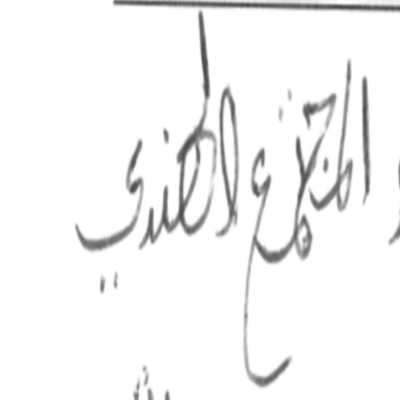 المجتمع الهندي